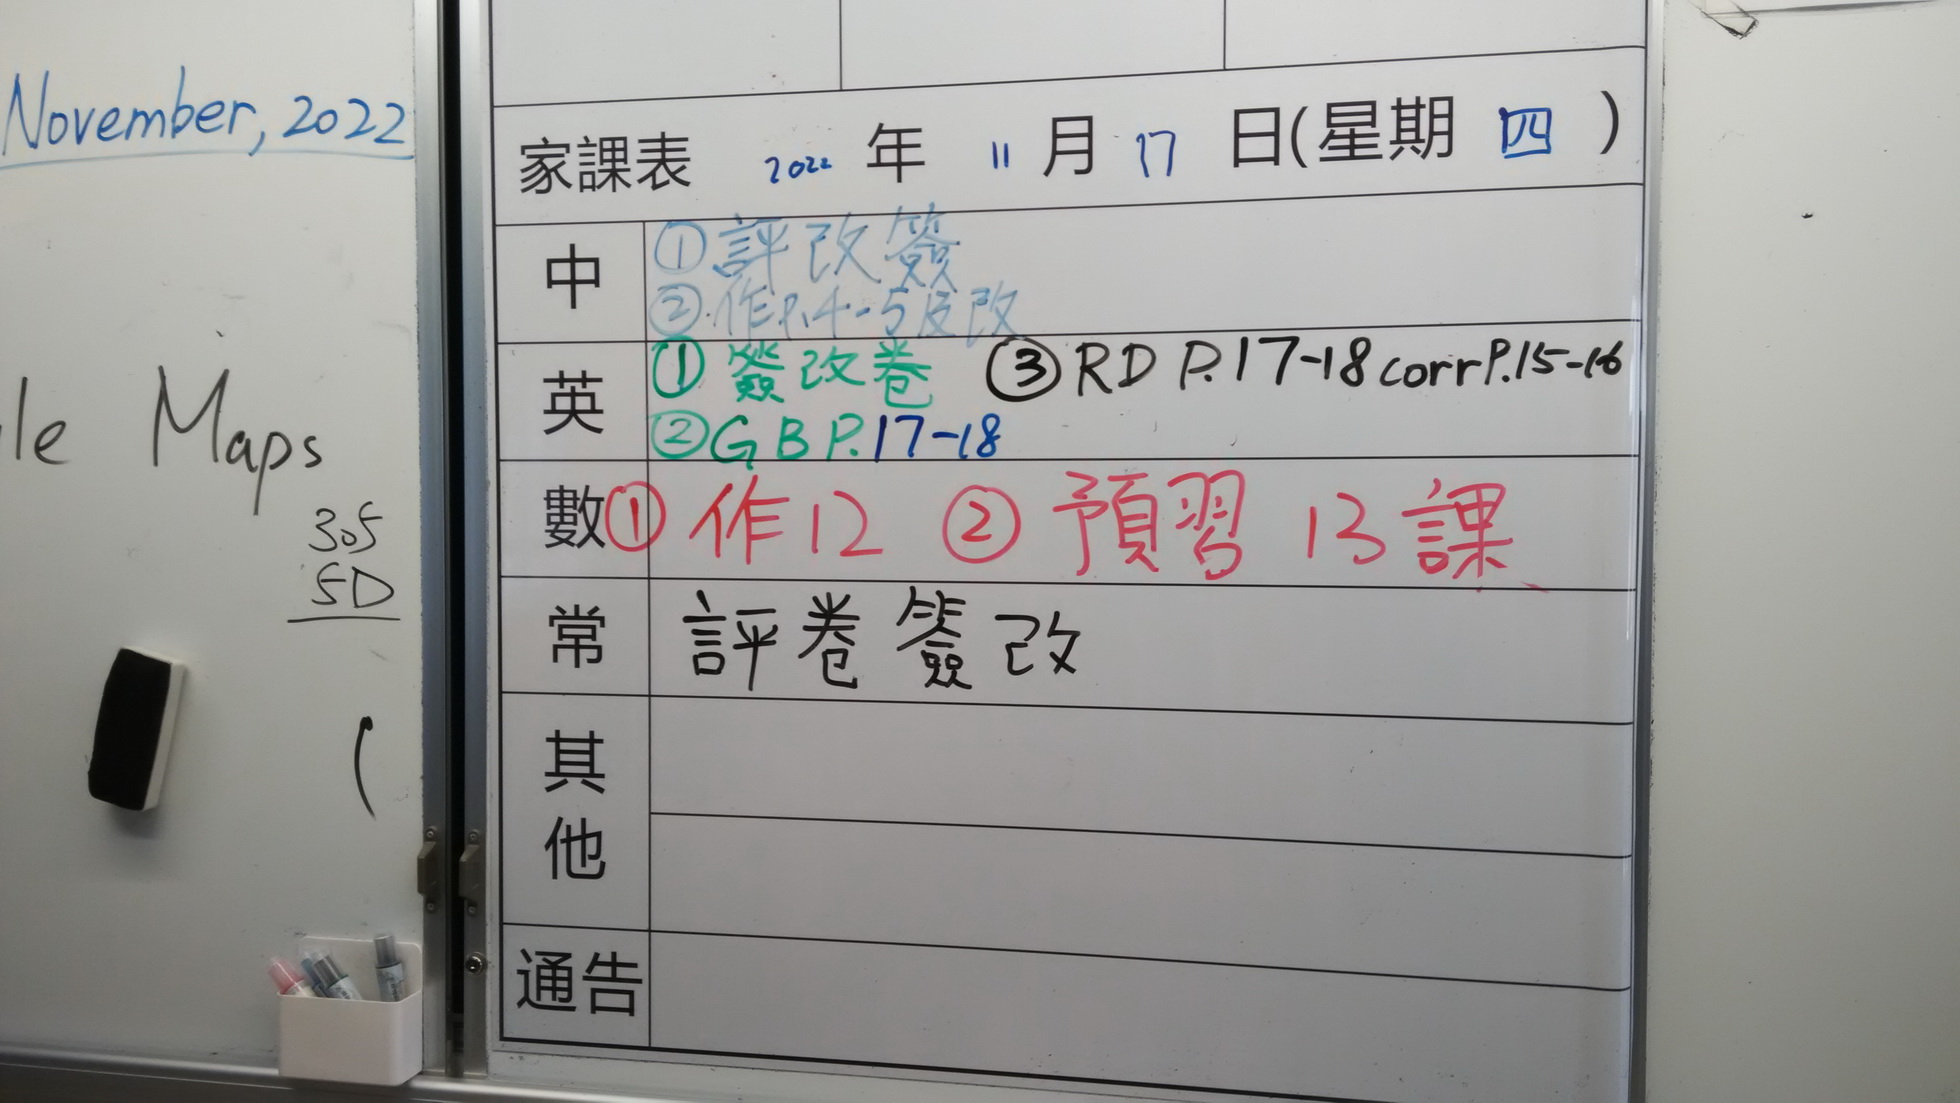 November, 2022
le Maps
305
5D
家課表 2022 年 11 月 17 日(星期 四 )
中
①評改簽
②作P.4-5及改
英
①簽改卷 ③RD P.17-18 corr P.15-16
②GB P.17-18
數 ①作12 ②預習13課
常 評卷簽改
其他
通告